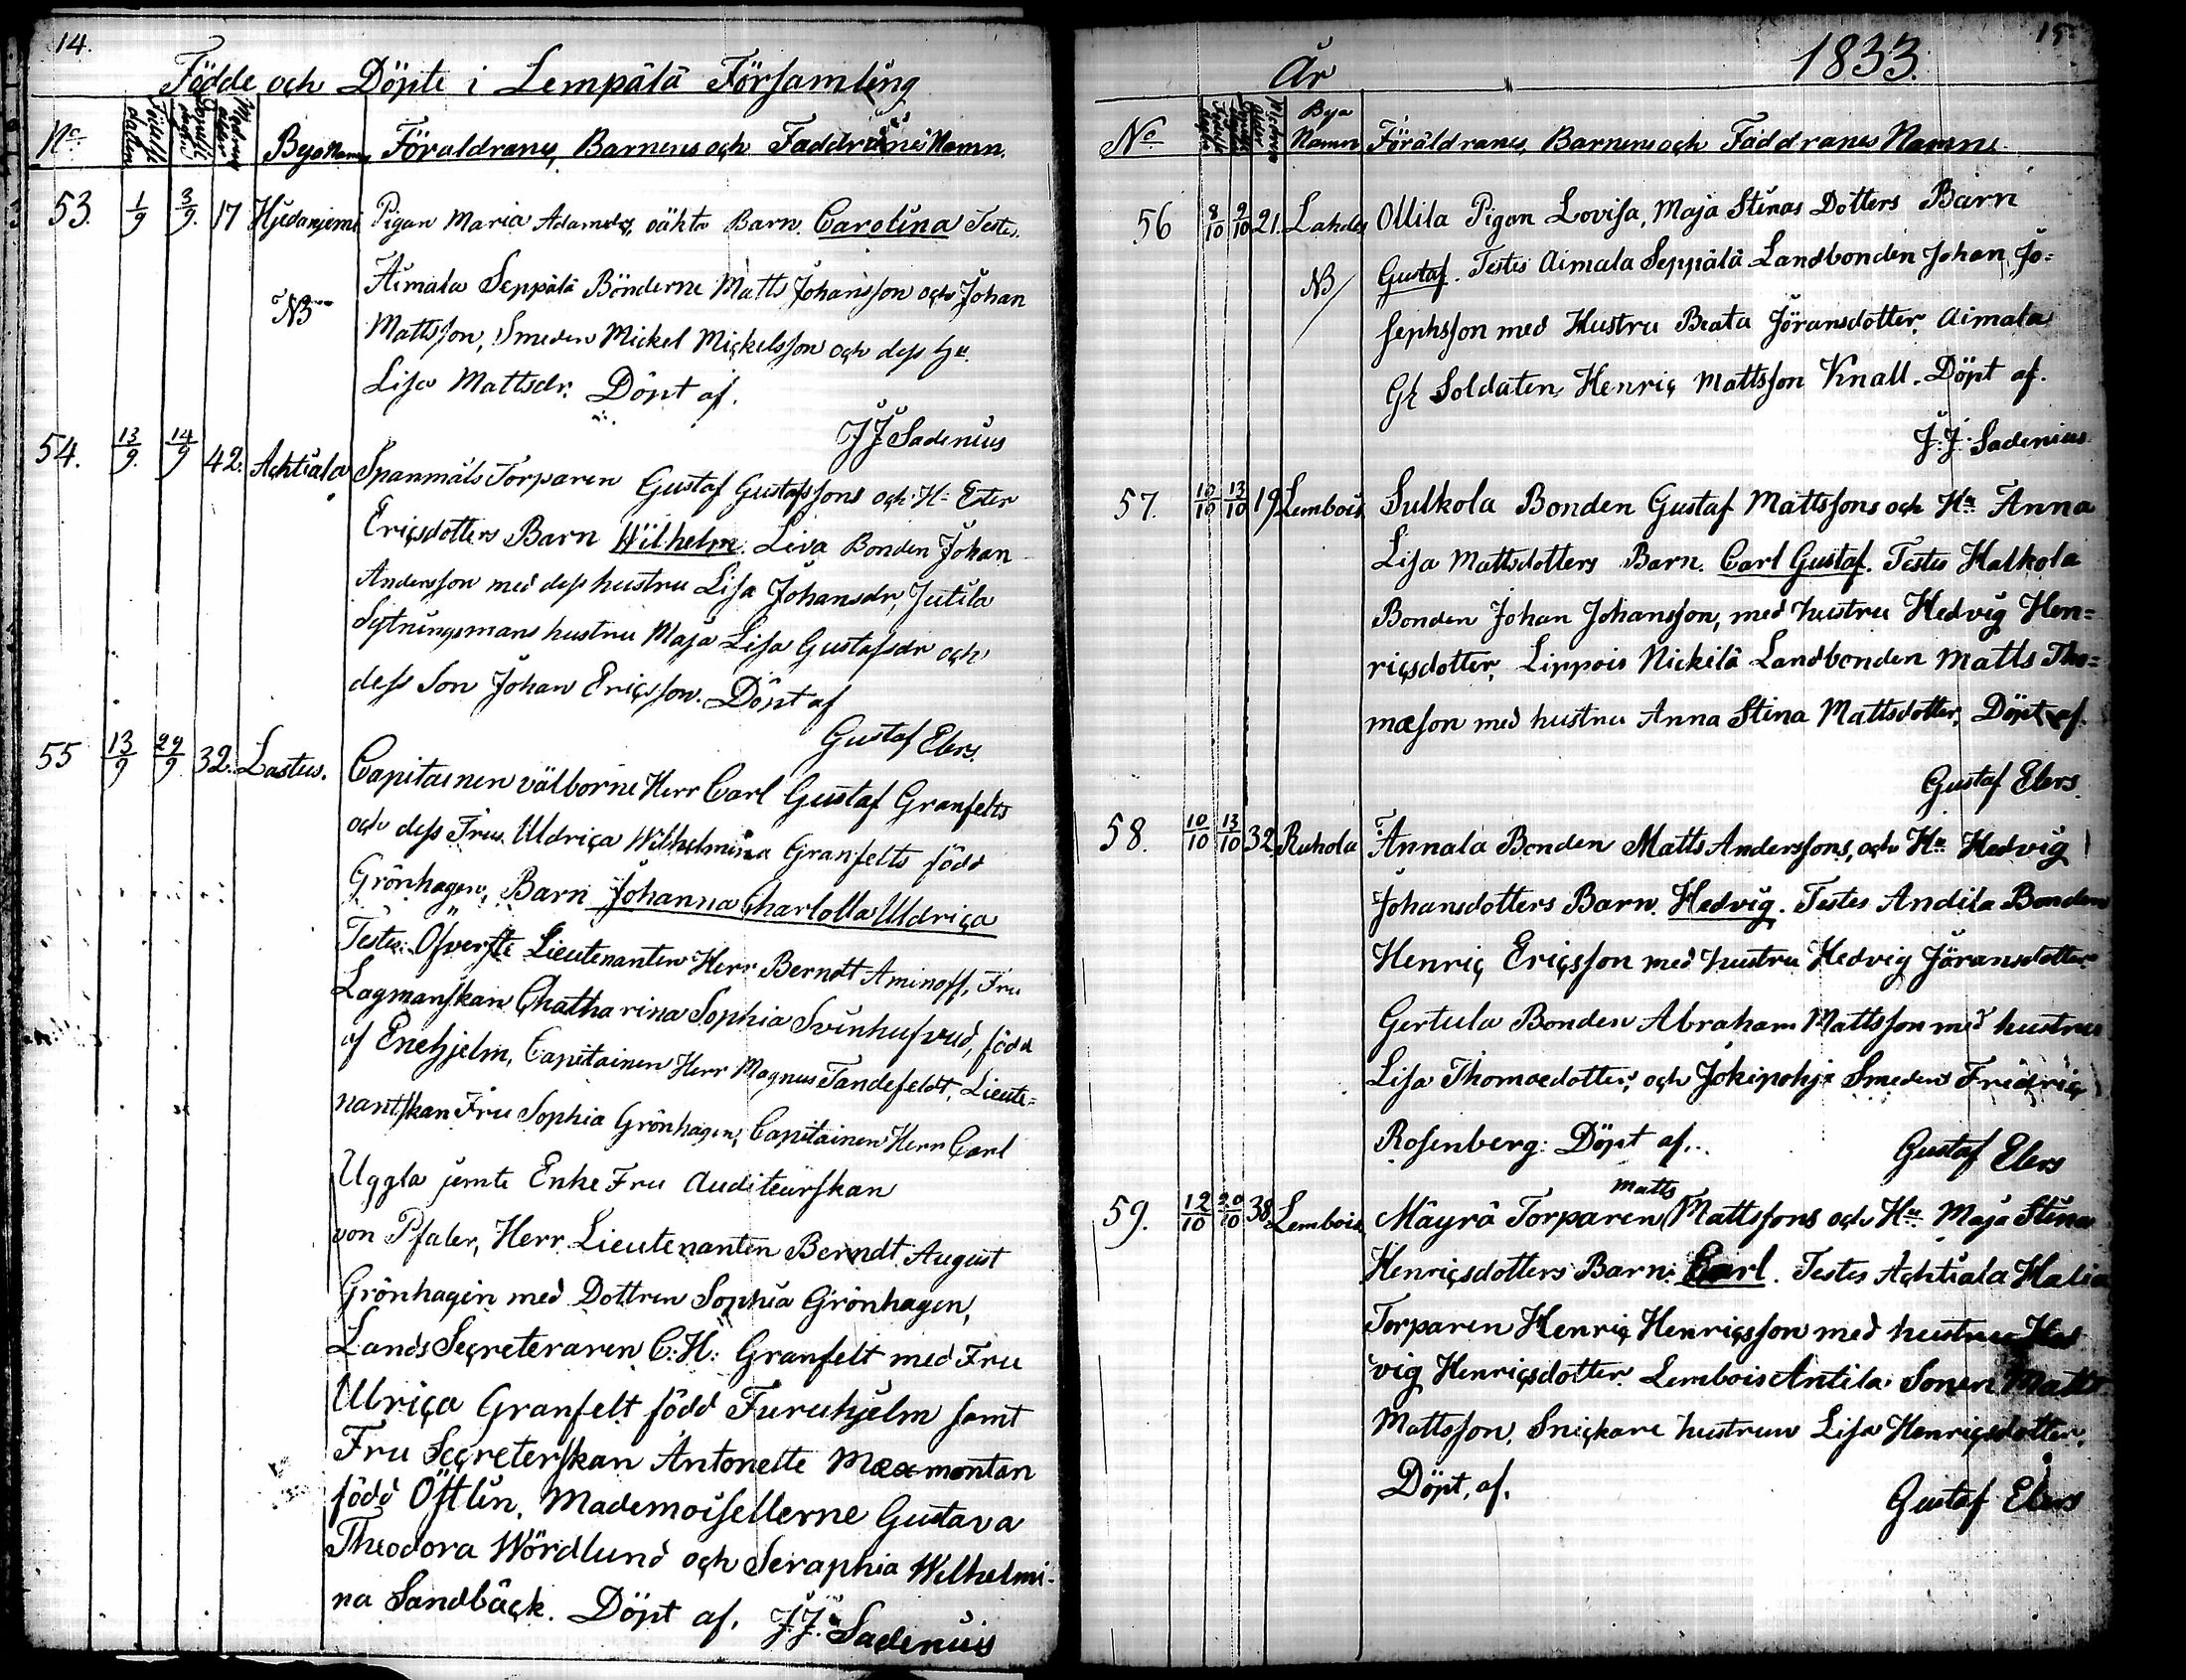 14.
Födde och Döpte i Lempälä Församling
No
Födelse dagen
Döpelse dagen
Modrens ålder
Bya Namn
Föräldrarnes, Barnens och Faddrarnes Namn.
53. 1/9 3/9. 17 Hjedanjemi Pigan Maria Adamsdrs, oäkta Barn. Carolina Testes.
Aimala Seppälä Bönderne Matts Johansson och Johan
NB
Mattsson, Smeden Mickel Mickelsson och dess Hu.
Lisa Mattsdr. Döpt af.
J J Sadenius
54. 13/9. 14/9 42. Achtiala Spanmåls Torparen Gustaf Gustafssons och Hu Ester
Ericsdotters Barn Wilhelm. Liva Bonden Johan
Andersson med dess hustru Lisa Johansdr, Jutila
Sytningsmans hustru Maja Lisa Gustafsdr och
dess Son Johan Ericsson. Döpt af
Gustaf Elers.
55 13/9 29/9 32. Lastus. Capitainen välborne Herr Carl Gustaf Granfelts
och dess Fru Uldrica Wilhelmina Granfelts född
Grönhagen, Barn Johanna Charlotta Uldrica
Testes: Öfverste Lieutenanten Herr Berndt Aminoff, Fru
Lagmanskan Chatharina Sophia Svinhufvud, född
af Enehjelm, Capitainen Herr Magnus Tandefeldt, Lieute=
nantskan Fru Sophia Grönhagen, Capitainen Herr Carl
Uggla jemte Enke Fru Auditeurskan
von Pfaler, Herr Lieutenanten Berndt August
Grönhagen med Dottren Sophia Grönhagen,
Lands Secreteraren C: H: Granfelt med Fru
Ulrica Granfelt född Furuhjelm samt
Fru Secreterskan Antonette Maxmontan
född Östlin, Mademoisellerne Gustava
Theodora Wördlund och Seraphia Wilhelmi-
na Sandbäck. Döpt af. J. J. Sadenius
15
År 1833.
No
Bya Namn
Föräldranes, Barnens och Faddranes Namn
56 8/10 9/10 21. Lahdes Ollila Pigan Lovisa, Maja Stinas Dotters Barn
NB Gustaf. Testes Aimala Seppälä Landbonden Johan Jo=
sephsson med Hustru Beata Jöransdotter, Aimala
Gl Soldaten Henric Mattsson Knall. Döpt af.
J. J. Sadenius
57. 10/10 13/10 19 Lembois Sulkola Bonden Gustaf Mattssons och Hu Anna
Lisa Mattsdotters Barn. Carl Gustaf. Testes Halkola
Bonden Johan Johansson, med hustru Hedvig Hen=
ricsdotter, Lippois Nickilä Landbonden Matts Tho=
mæson med hustru Anna Stina Mattsdotter, Döpt af.
Gustaf Elers.
58. 10/10 13/10 32 Ruhola Annala Bonden Matts Anderssons, och Hu Hedvig
Johansdotters Barn. Hedvig. Testes Andila Bonden
Henric Ericsson med hustru Hedvig Jöransdotter
Gertula Bonden Abraham Mattsson med hustru
Lisa Thomædotter, och Jokipohja Smeden Fredric
Rosenberg: Döpt af.
Gustaf Elers
59. 12/10 20/10 38. Lembois Mäyrä Torparen Matts Mattssons och Hu Maja Stina
Henricsdotters Barn: Carl. Testes Achtiala Halia
Torparen Henric Henricsson med hustru Hed
vig Henricsdotter. Lembois Antila Sonen Matts
Mattsson. Snickare hustrun Lisa Henricsdotter.
Döpt, af.
Gustaf Elers